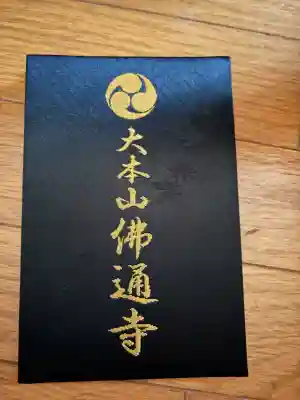 大本山佛通寺